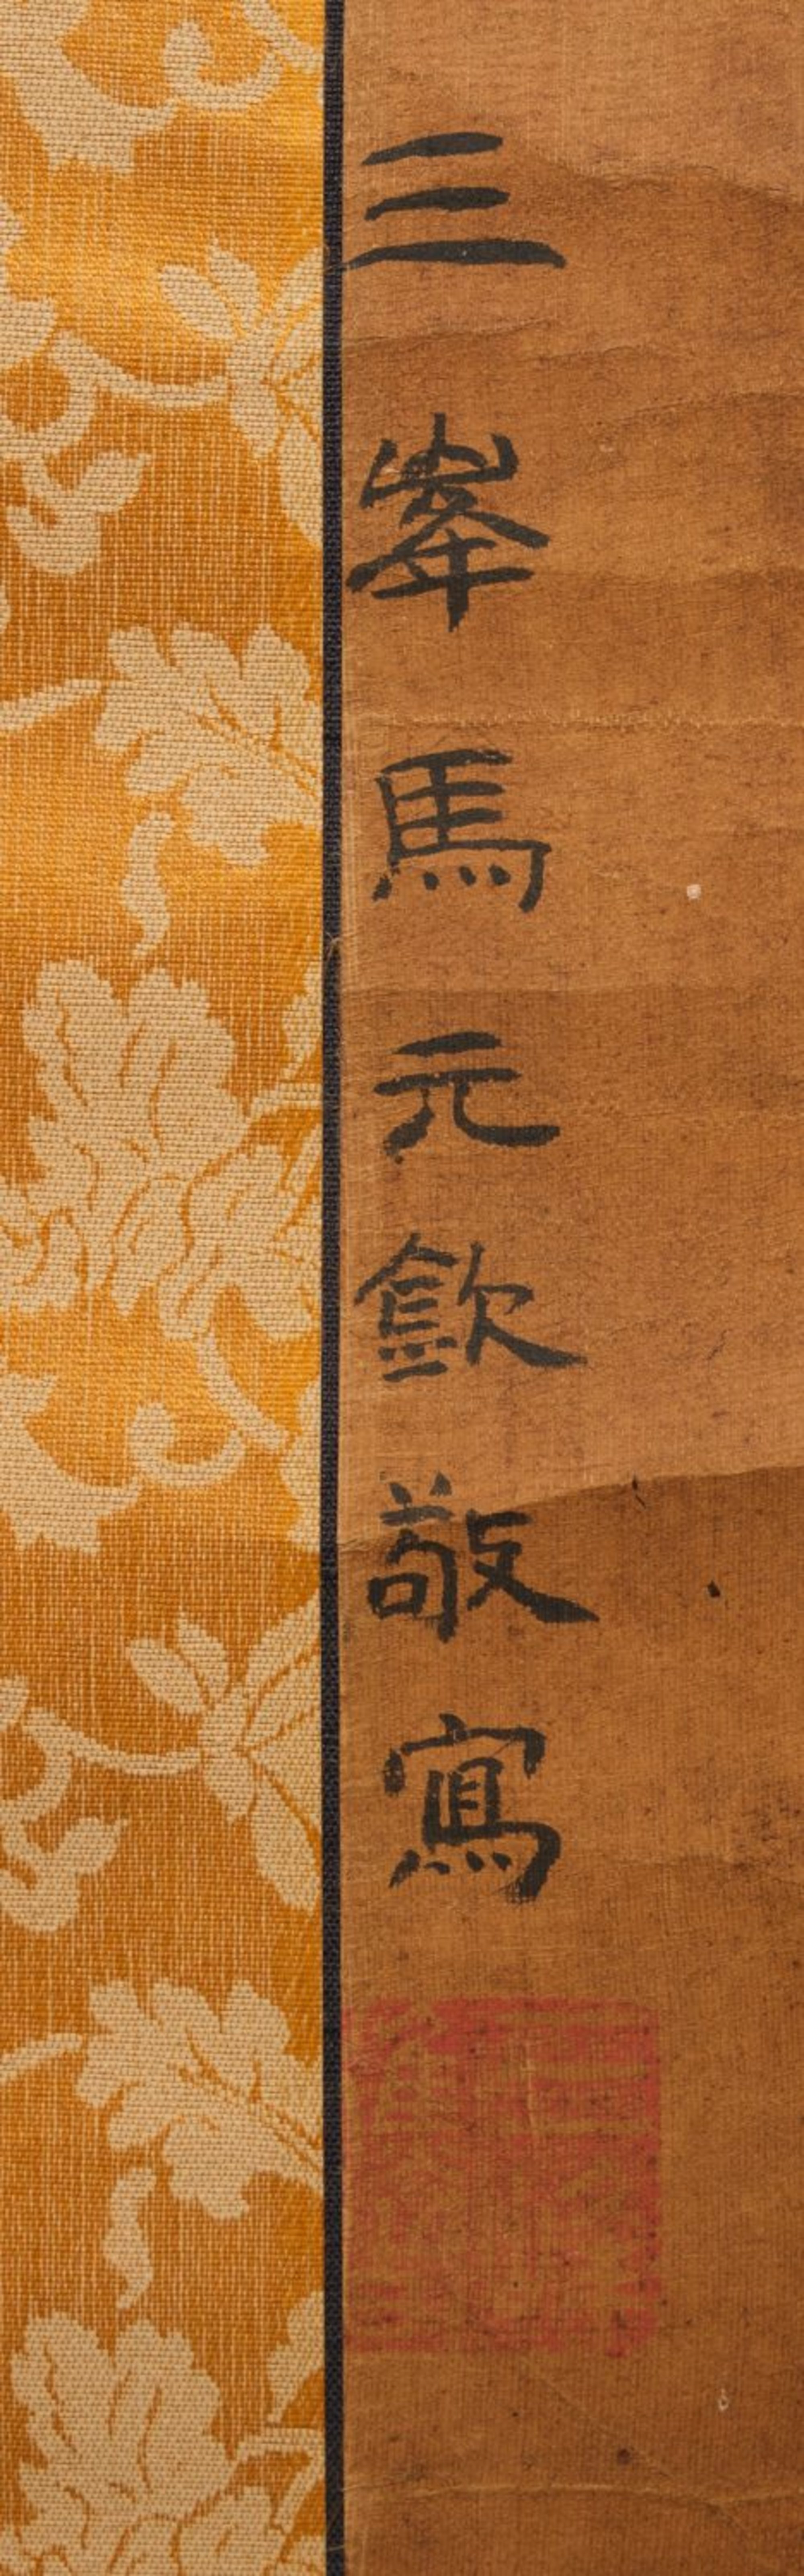 三峯馬元欽敬寫